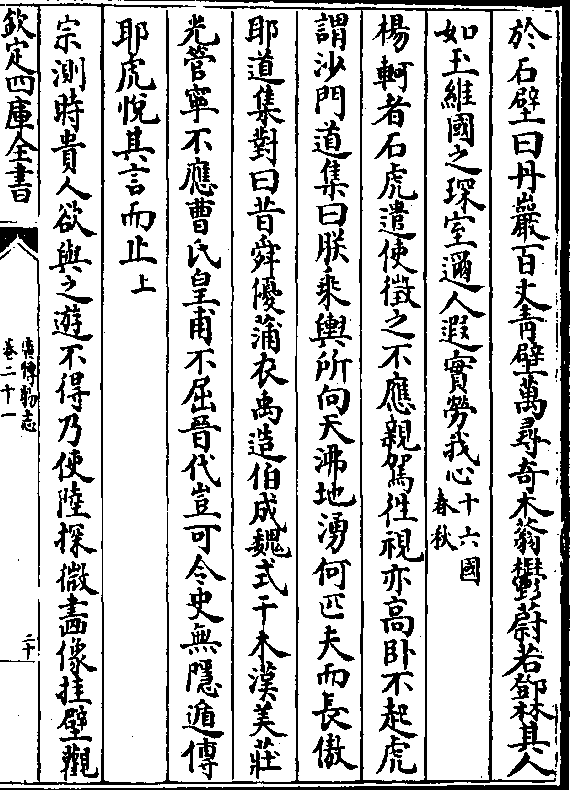 於石壁曰丹巖百丈青壁萬尋奇木蓊鬱蔚若鄧林其人
如玉維國之琛室邇人遐實勞我心十六國春秋
楊軻者石虎遣使徵之不應親駕往視亦高卧不起虎
謂沙門道集曰朕乘輿所向天沸地湧何匹夫而長傲
耶道集對曰昔舜優蒲衣禹造伯成魏式干木漢美莊
光管寧不應曹氏皇甫不屈晉代豈可令史無隱遁傳
耶虎悅其言而止上
宗測時貴人欲與之遊不得乃使陸探微畫像挂壁觀
欽定四庫全書
廣博物志
卷二十一
二十